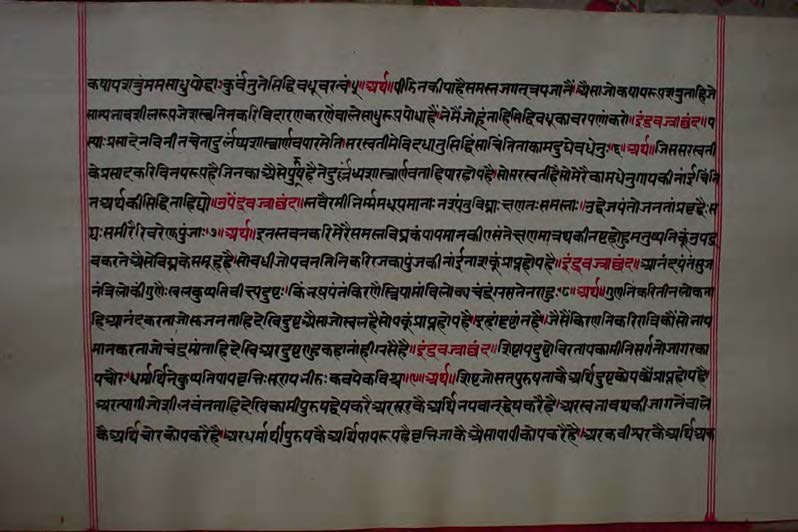 कषापशत्रुंममसाधुपोहाः कुर्वंतुनेसिद्दिवधूवरत्वं५॥अर्थ॥पीडिनकीपाहैसमस्तजगत्त्रयजानैं।अैसाजोकषापरूपशत्रुताहिजे
साम्पभावशीलरूपजेशस्त्रनिनकरिविदारणकरणैवालेसाधुरूपयोधाहैं।नेमैंजोहूंताहिसिद्दिवधूकावरपणांकरो॥इंद्रवज्राछंद॥प
स्पाःप्रसादेनविनीतचेताःदुर्लंघ्यशास्त्रार्णवपारमेति।सरस्वतीमेविदधातुसिद्दिंसाचिंतिताकामदुघेवधेनुः६॥अर्थ॥जिससरस्वती
केप्रसादकरिविनयरूपहैजिनका अैसेपुरुषहैनेदुर्लंघ्यशास्त्रार्णवताहिपारहोपहै।सोसरस्वतीहैसोमेरैकामधेनुगायकीनांईचिंति
तअर्थकीसिद्दिताहिद्यो॥उपेंद्रवज्राछंद॥स्तवैरमीभिर्ममधूपमानाःनश्यंतुविघ्नाःक्षणतःसमस्ताः।उद्वेजयंतोजनतांप्रवृद्दैःस
द्यःसमीरैरिवरेणुपुंजाः७॥अर्थ॥इनस्तवनकरिमेरैसमस्तविघ्नकंपापमानकीएसंनेक्षणमात्रथकीनष्टहोहुमनुष्यनिकूंउपद्र
वकरनेअैसेविघ्नकेसमूहहै।सोवधीजोपवनतिनिकरिरजकापुंजकीनांईनाशकूंप्राप्तहोपहै॥इंद्रवज्राछंद॥आनंदयंतंसुज
नंत्रिलोकींगुणैःखलःकुप्यतिवीक्ष्पदुष्टः।किंभूषयंतंकिरणैस्त्रियामांविलोक्यचंद्रंनग्रसतेनराहुः८॥अर्थ॥गुणनिकरितीनलोकता
हिआनंदकरताजोसज्जनताहिदेखिदुष्टअैसाजोखलहैसोकोपकूंप्राप्तहोपहै।इहांदृष्टांतहै।जैसैंकिरणनिकरिरात्रिकौंसोभाप
मानकरताजोचंद्रमांताहिदेखिअरदुष्टराहुकहानांहींग्रसैहै॥इंद्रवज्राछंद॥शिष्टापदुष्टोविरतापकामीनिसर्गतोजागरका
पचौरः।धर्मार्थिनेकुप्यतिपापवृत्तिःसूरापभीरुःकवयेकविश्च॥९॥अर्थ॥शिष्टजोसत्पुरुषताकैअर्थिदुष्टकोपकौंप्राप्तहोपहै।
अरत्यागीजोशीलवंतताहिदेखिकामीपुरुषद्वेषकरैअरसूरकैअर्थिभयवान्द्वेषकरैहै।अरस्वभावथकीजागनैंवाले
कैअर्थिचोरकोपकरैहै।अरधर्मार्थीपुरुषकैअर्थिपापरूपहैवृत्तिजाकैअैसापापीकोपकरैहै।अरकवीश्वरकैअर्थिअक